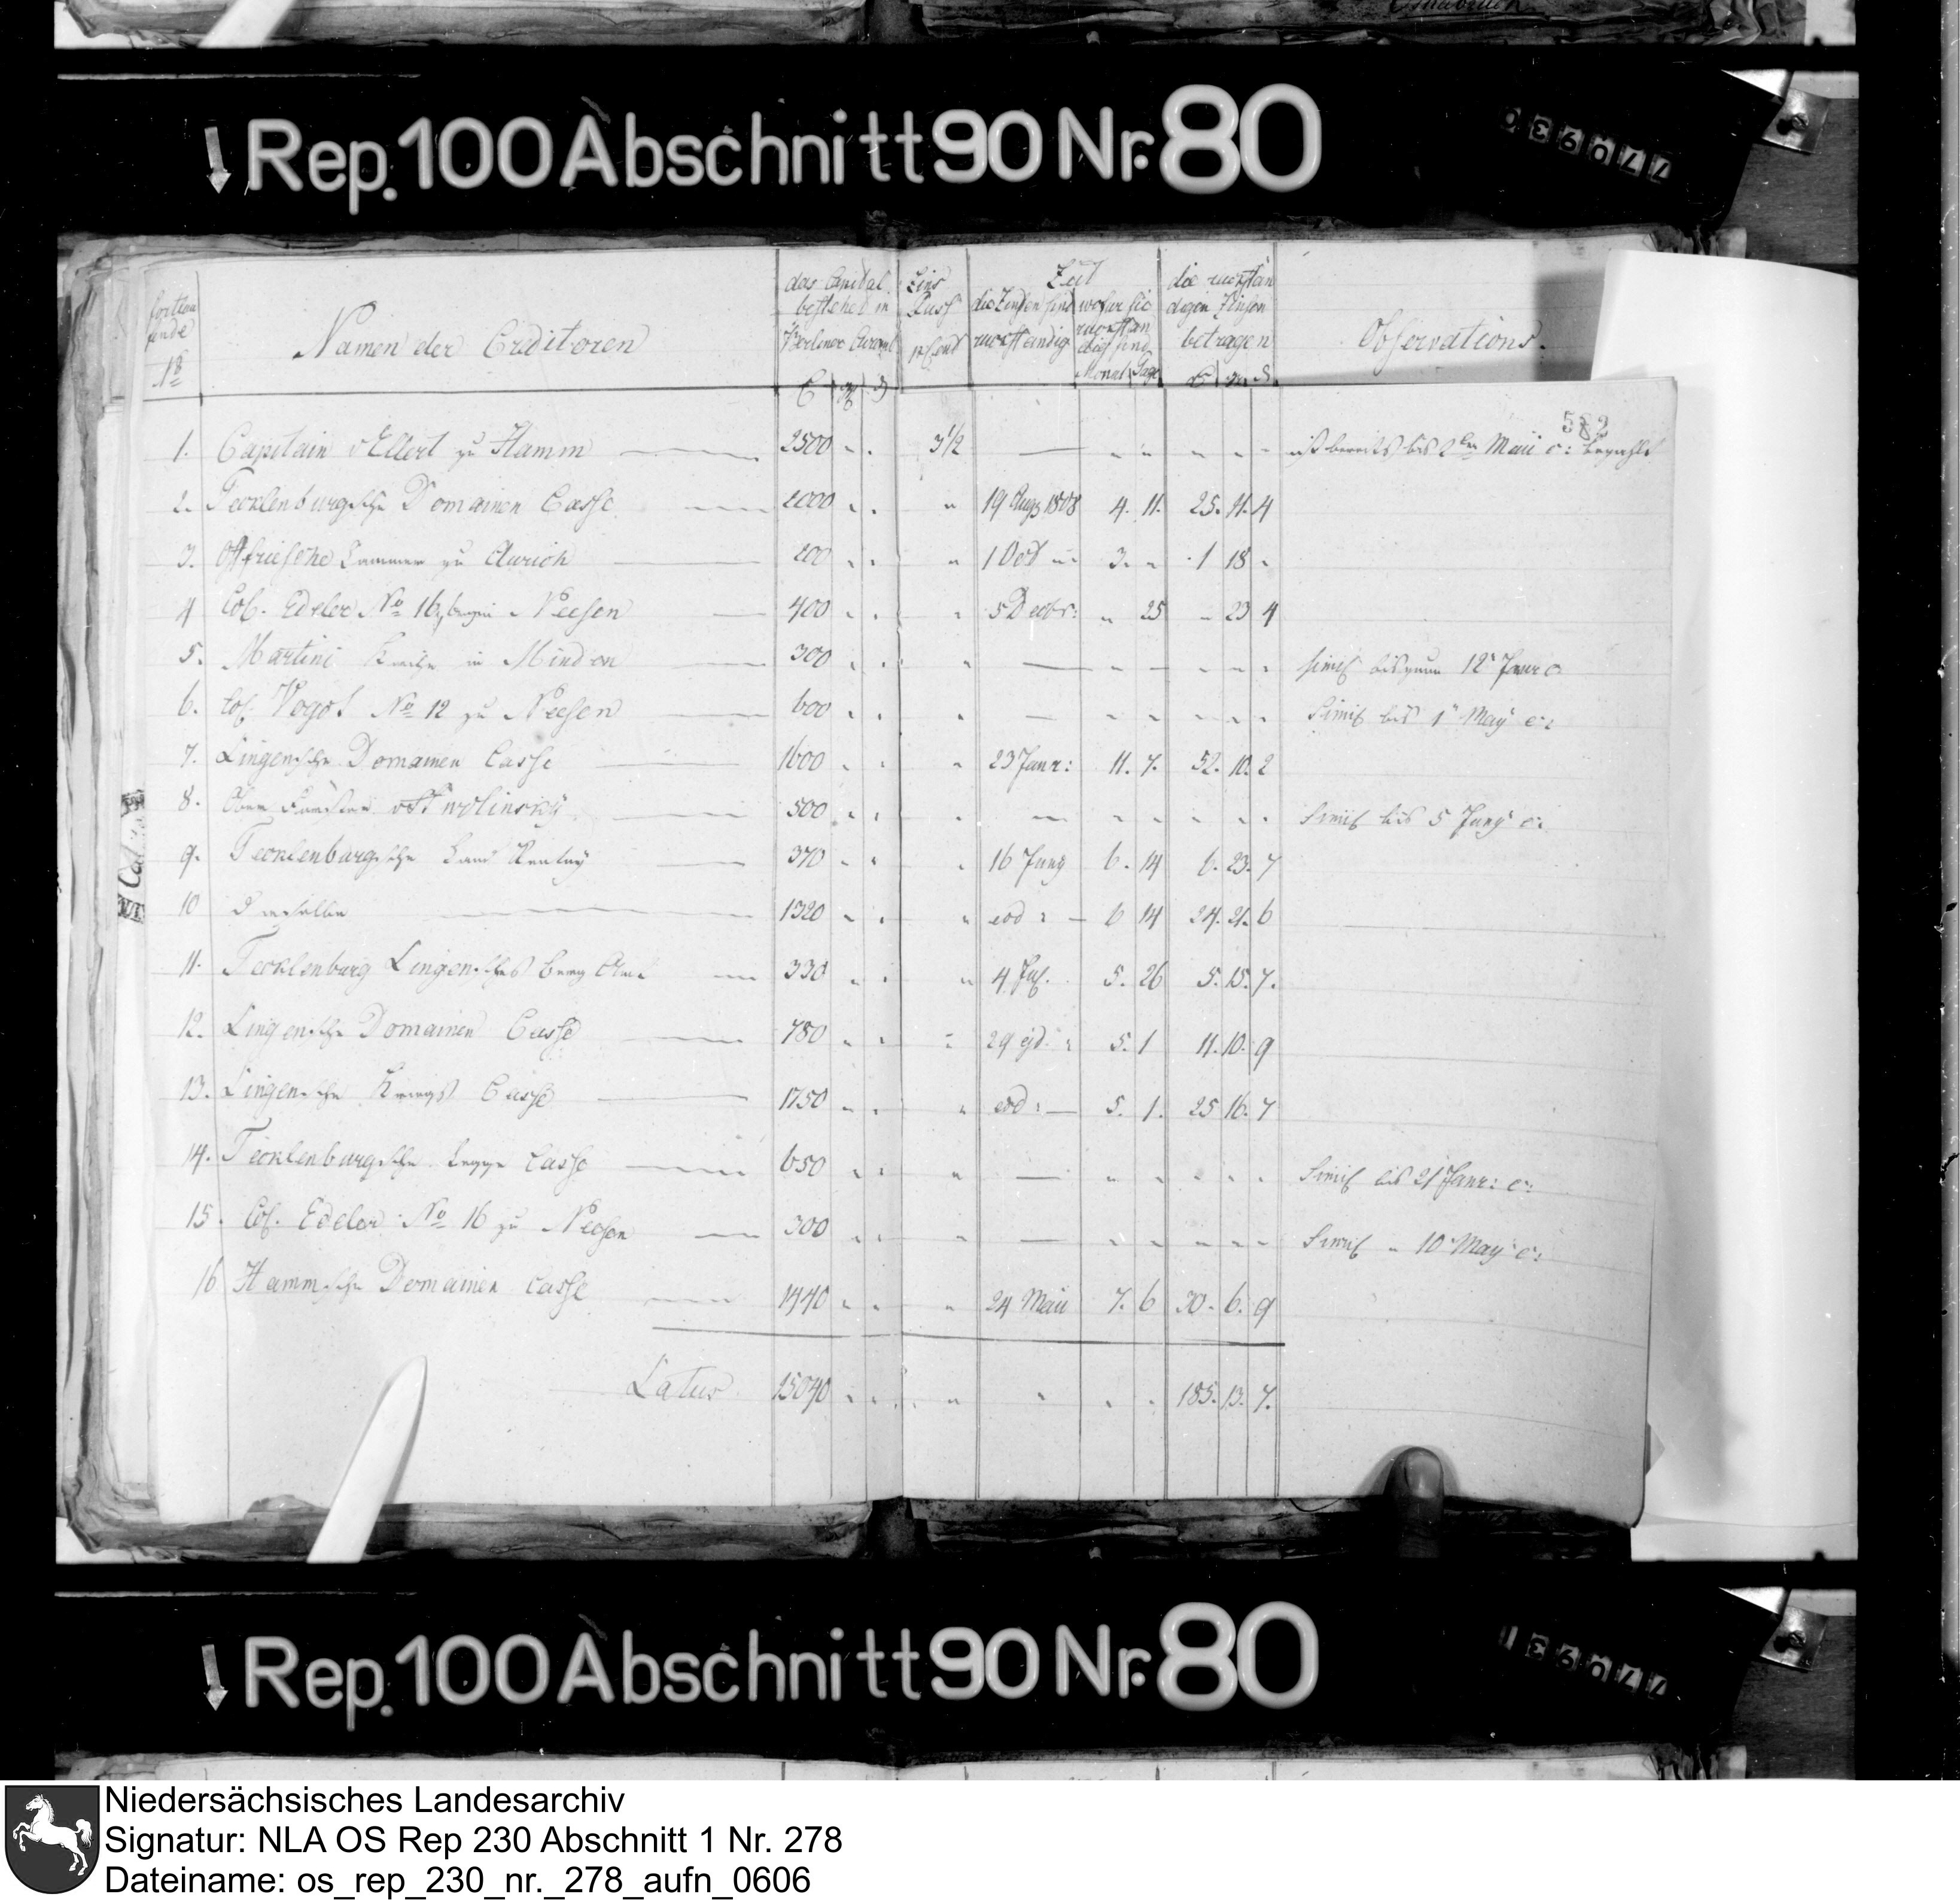 Rep. 100 Abschnitt 90 Nr. 80
fortlau
fende
No
Namen der Creditoren
das Capital
bestehet in
Berliner Courant
Zins
Fuss
Zeit
die Zinsen sind
rückständig
wofür sie
rückstän
dig sind
Monat Tage
die rückstän
digen Zinsen
betragen
Observations.
582
1. Capitain v Ellert zu Hamm 2500 3 1/2 ist bereits bis 2ten Maii c: bezahlt
2. Tecklenburgsche Domainen Casse 2000 " 19 Aug 1808 4. 11. 25. 11. 4
3. Ostfriesche Cammer zu Aurich 200 " 1 Oct 3. " 1 18 "
4 Col. Edeler No 16 Neesen 400 " 5 Decbr: " 25 " 23 4
5. Martini Kirche in Minden 300 " 12 Janr c
6. Col. Vogt No 12 zu Neesen 600 " Simil bis 1 May c:
7. Lingensche Domainen Casse 1600 " 23 Janr: 11. 7. 52. 10. 2
8. Ober 500 " Simil bis 5 Juny c:
9. Tecklenburgsche Land Rentey 370 " 16 Juny 6. 14 6. 23. 7
10 Dieselbe 1320 " eod: 6 14 24. 21. 6
11. Tecklenburg Lingensches Berg Amt 330 " 4 Jul. 5. 26 5. 15. 7.
12. Lingensche Domainen Casse 780 " 29 ejd. 5. 1 11. 10. 9
13. Lingensche Kriegs Casse 1750 " eod: 5. 1. 25 16. 7
14. Tecklenburgsche Legge Casse 650 " Simil bis 21 Janr: c:
15. Col. Edeler No 16 zu Neesen 300 " Simil " 10 May c:
16 Hammsche Domainen Casse 1440 " 24 Maii 7. 6 30. 6. 9
Latus 15040 " 185. 13. 7.
Rep. 100 Abschnitt 90 Nr. 80
Niedersächsisches Landesarchiv
Signatur: NLA OS Rep 230 Abschnitt 1 Nr. 278
Dateiname: os_rep_230_nr._278_aufn_0606